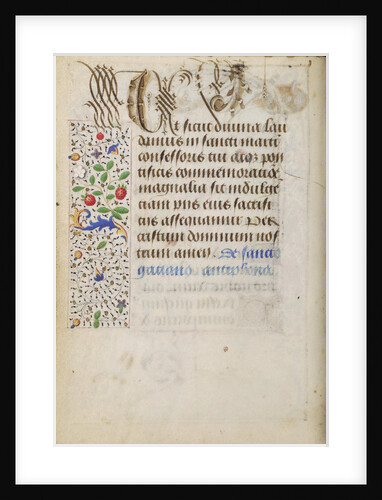 Ut sicut divinam lau
damus in sancti marti
confessoris tui atque pon
tificis commemoratio
magnalia sic indulge
ciam piis eius sacris
tis assequamur Per
cristum dominum nos
trum amen De sanc
gaciano antiphona